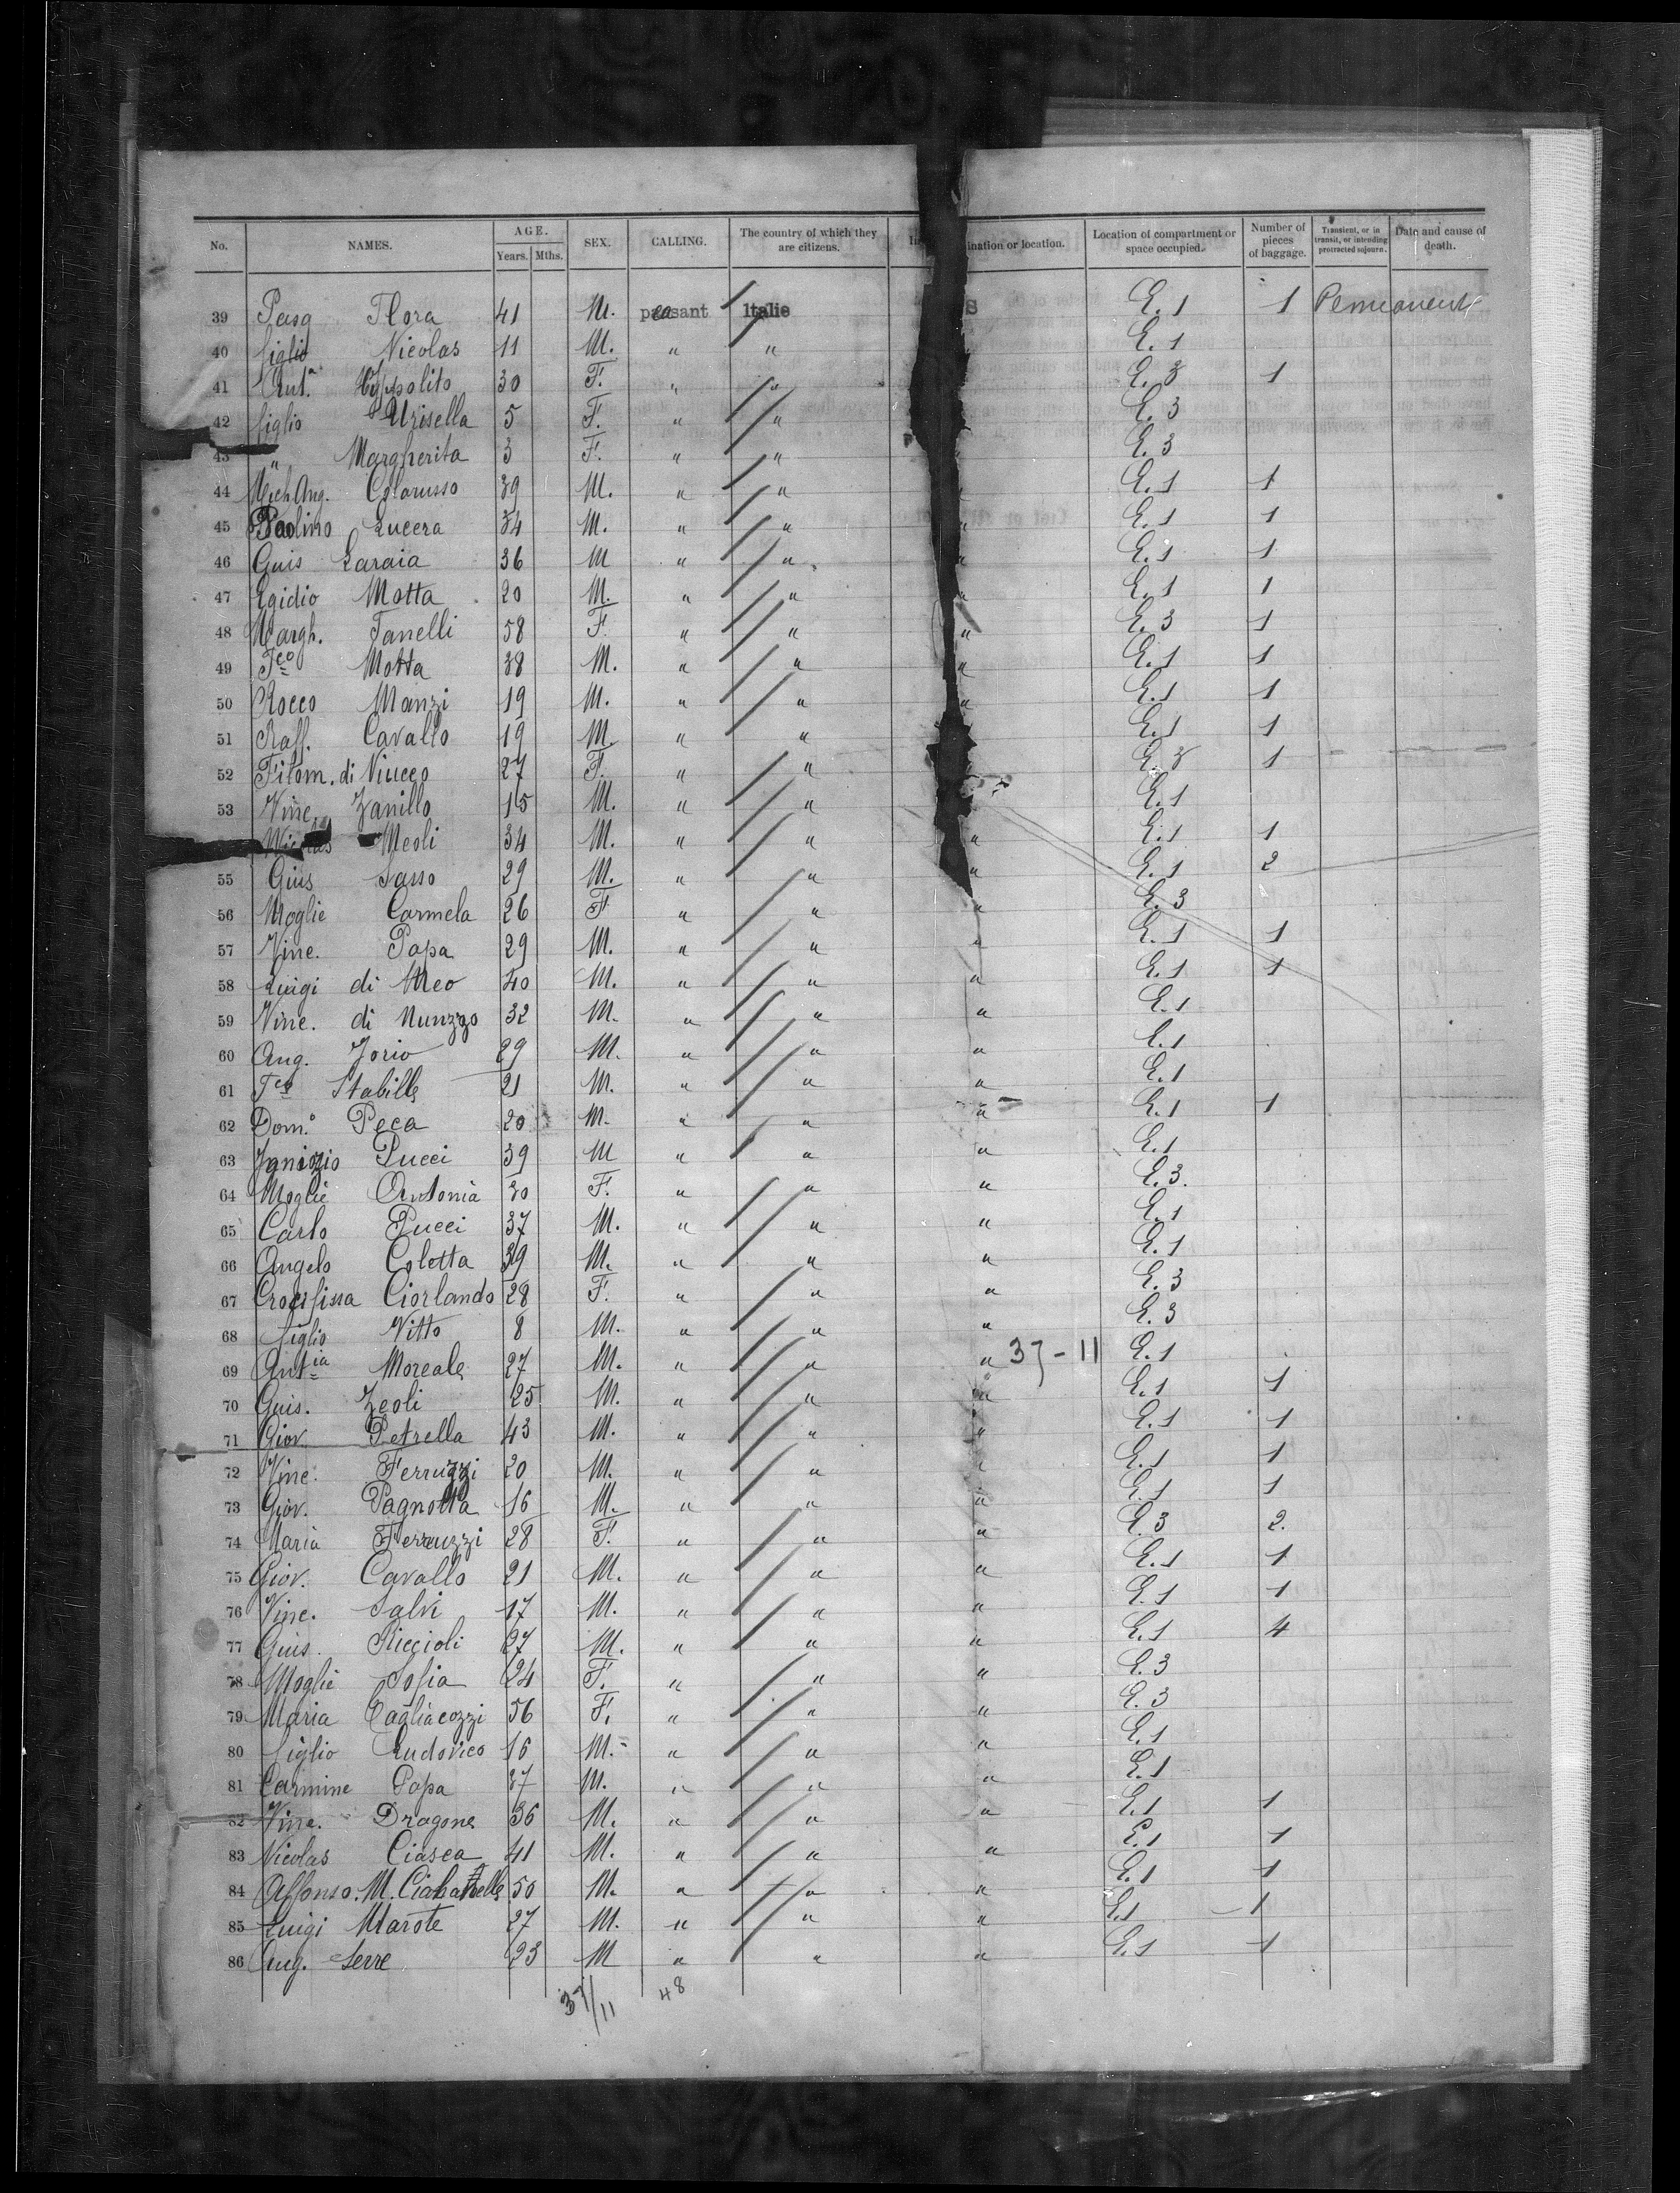 No. NAMES. AGE. Years. Mths. SEX. CALLING. The country of which they are citizens. ination or location. Location of compartment or space occupied. Number of pieces of baggage. Transient, or in transit, or intending protracted sojourn. Date and cause of death.
39 Pasq Flora 41 M. peasant Italie S E. 1 1 Permanent
40 figlio Nicolas 11 M. " " E. 1
41 Ant.a Hyppolito 30 F. " " E. 3 1
42 figlio Urisella 5 F. " " E. 3
43 " Margherita 3 F. " " E. 3
44 Mich Ang. Colarusso 39 M. " " E. 1 1
45 Paolino Lucera 34 M. " " E. 1 1
46 Guis Laraia 36 M " " " E. 1 1
47 Egidio Motta 20 M. " " " E. 1 1
48 Margh. Fanelli 58 F. " " " E. 3 1
49 Fco Motta 38 M. " " " E. 1 1
50 Rocco Manzi 19 M. " " " E. 1 1
51 Raff. Cavallo 19 M. " " E. 1 1
52 Filom. di Niucco 27 F. " " E. 3 1
53 Vinc. Zanillo 15 M. " " E. 1
Nicolas Meoli 34 M. " " " E. 1 1
55 Gius Sasso 29 M. " " " E. 1 2
56 Moglie Carmela 26 F " " " E. 3
57 Vinc. Papa 29 M. " " " E. 1 1
58 Luigi di Meo 40 M. " " " E. 1 1
59 Vinc. di Nunzzo 32 M. " " " E. 1
60 Ang. Jorio 29 M. " " " E. 1
61 Fco Stabille 21 M. " " " E. 1
62 Dom.o Peca 20 M. " " " E. 1 1
63 Ignazio Pucci 39 M " " " E. 1
64 Moglie Antonia 30 F. " " " E. 3.
65 Carlo Pucci 37 M. " " " E. 1
66 Angelo Coletta 39 M. " " " E. 1
67 Crocifissa Ciorlando 28 F. " " " E. 3
68 figlio Vitto 8 M. " " " E. 3
69 Antia Moreale 27 M. " " " 37 - 11 E. 1
70 Guis. Zeoli 25 M. " " " E. 1 1
71 Giov. Petrella 43 M. " " " E. 1 1
72 Vinc. Ferruzzi 20 M. " " " E. 1 1
73 Giov. Pagnotta 16 M. " " " E. 1 1
74 Maria Ferruzzi 28 F. " " " E. 3 2.
75 Giov. Cavallo 21 M. " " " E. 1 1
76 Vinc. Salvi 17 M. " " " E. 1 1
77 Guis. Riccioli 27 M. " " " E. 1 4
78 Moglie Sofia 24 F. " " " E. 3
79 Maria Cagliacozzi 56 F. " " " E. 3
80 figlio Ludovico 16 M. " " " E. 1
81 Carmine Papa 37 M. " " " E. 1
82 Vinc. Dragone 36 M. " " " E. 1 1
83 Nicolas Ciasca 41 M. " " " E. 1 1
84 Alfonso. M. 50 M. " " " E. 1 1
85 Luigi Marote 27 M. " " " E. 1 1
86 Aug. Serre 23 M " " " E. 1 1
37/11 48